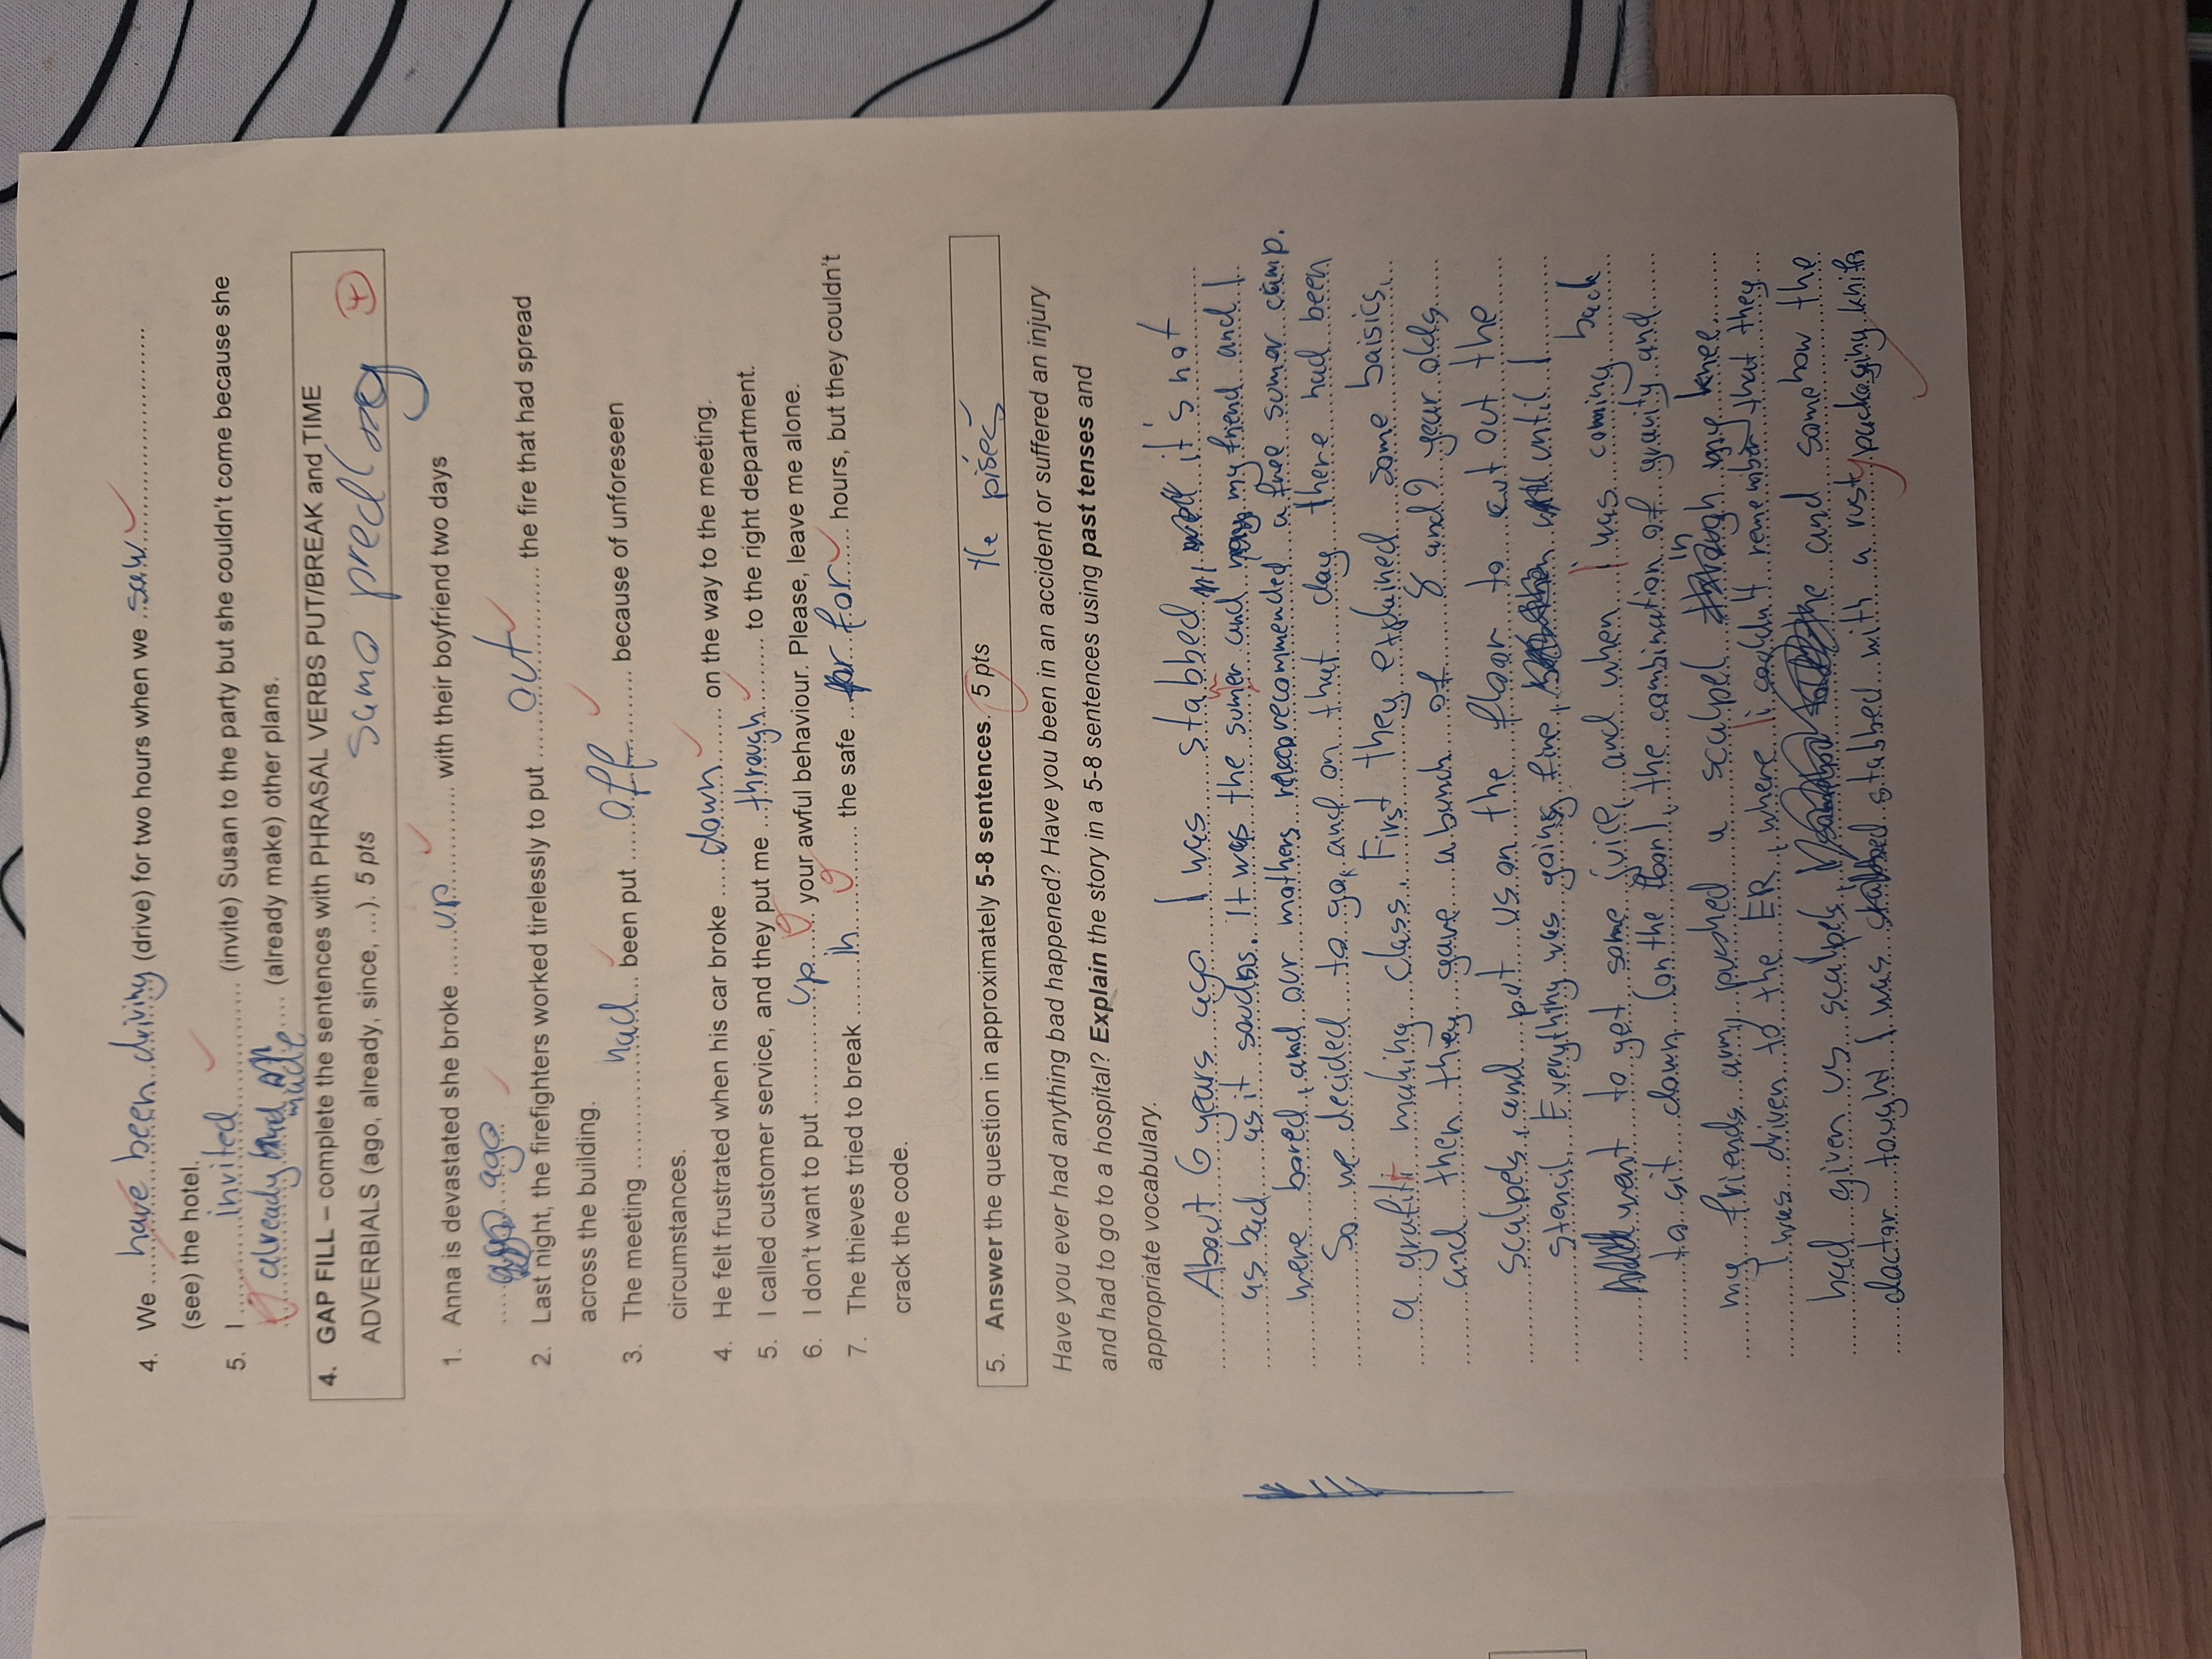 4. We ... have been driving (drive) for two hours when we ... saw ...
(see) the hotel.
5. I ... invited ... (invite) Susan to the party but she couldn't come because she
... already had made ... (already make) other plans.
4. GAP FILL – complete the sentences with PHRASAL VERBS PUT/BREAK and TIME
ADVERBIALS (ago, already, since, ...). 5 pts samo predlog 4
1. Anna is devastated she broke ... up ... with their boyfriend two days
... ago
2. Last night, the firefighters worked tirelessly to put ... out ... the fire that had spread
across the building.
3. The meeting ... had ... been put ... off ... because of unforeseen
circumstances.
4. He felt frustrated when his car broke ... down ... on the way to the meeting.
5. I called customer service, and they put me ... through ... to the right department.
6. I don't want to put ... up ... your awful behaviour. Please, leave me alone.
7. The thieves tried to break ... in ... the safe ... for ... hours, but they couldn't
crack the code.
5. Answer the question in approximately 5-8 sentences. 5 pts tle pišeš
Have you ever had anything bad happened? Have you been in an accident or suffered an injury
and had to go to a hospital? Explain the story in a 5-8 sentences using past tenses and
appropriate vocabulary.
About 6 years ago I was stabbed, it's not
as bad as it soudns. It was the sumer and my friend and I
were bored, and our mothers recommended a free sumer camp.
So we decided to go, and on that day there had been
a grafiti making class. First they explained some baisics,
and then they gave a bunch of 8 and 9 year olds
scalpels, and put us on the floor to cut out the
stencil. Everything was going fine, until I
went to get some juice, and when I was coming back
to sit down (on the floor), the combination of gravity and
my friends army pushed a scalpel in my knee.
I was driven to the ER, where I couldn't remember that they
had given us scalpels, and somehow the
doctor tought I was stabbed with a rusty packaging knife